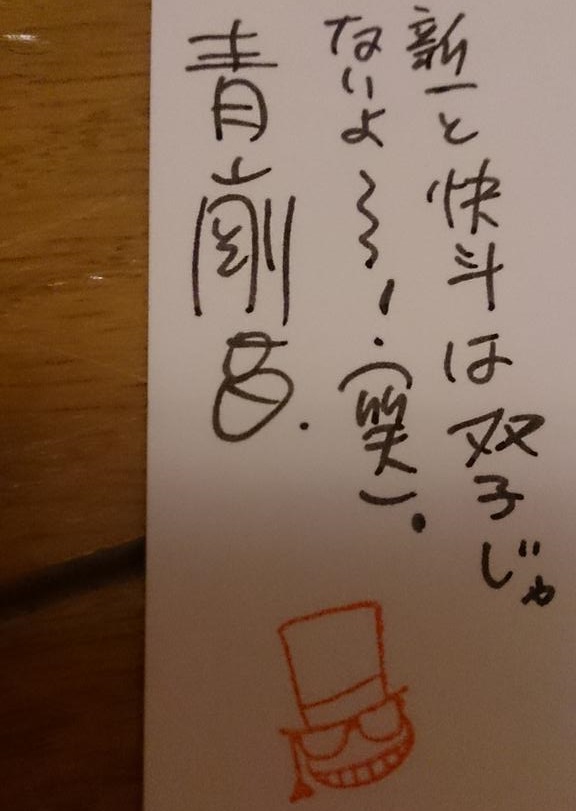 新一と快斗は双子じゃ
ないよ〜〜!(笑)。
青山剛昌.